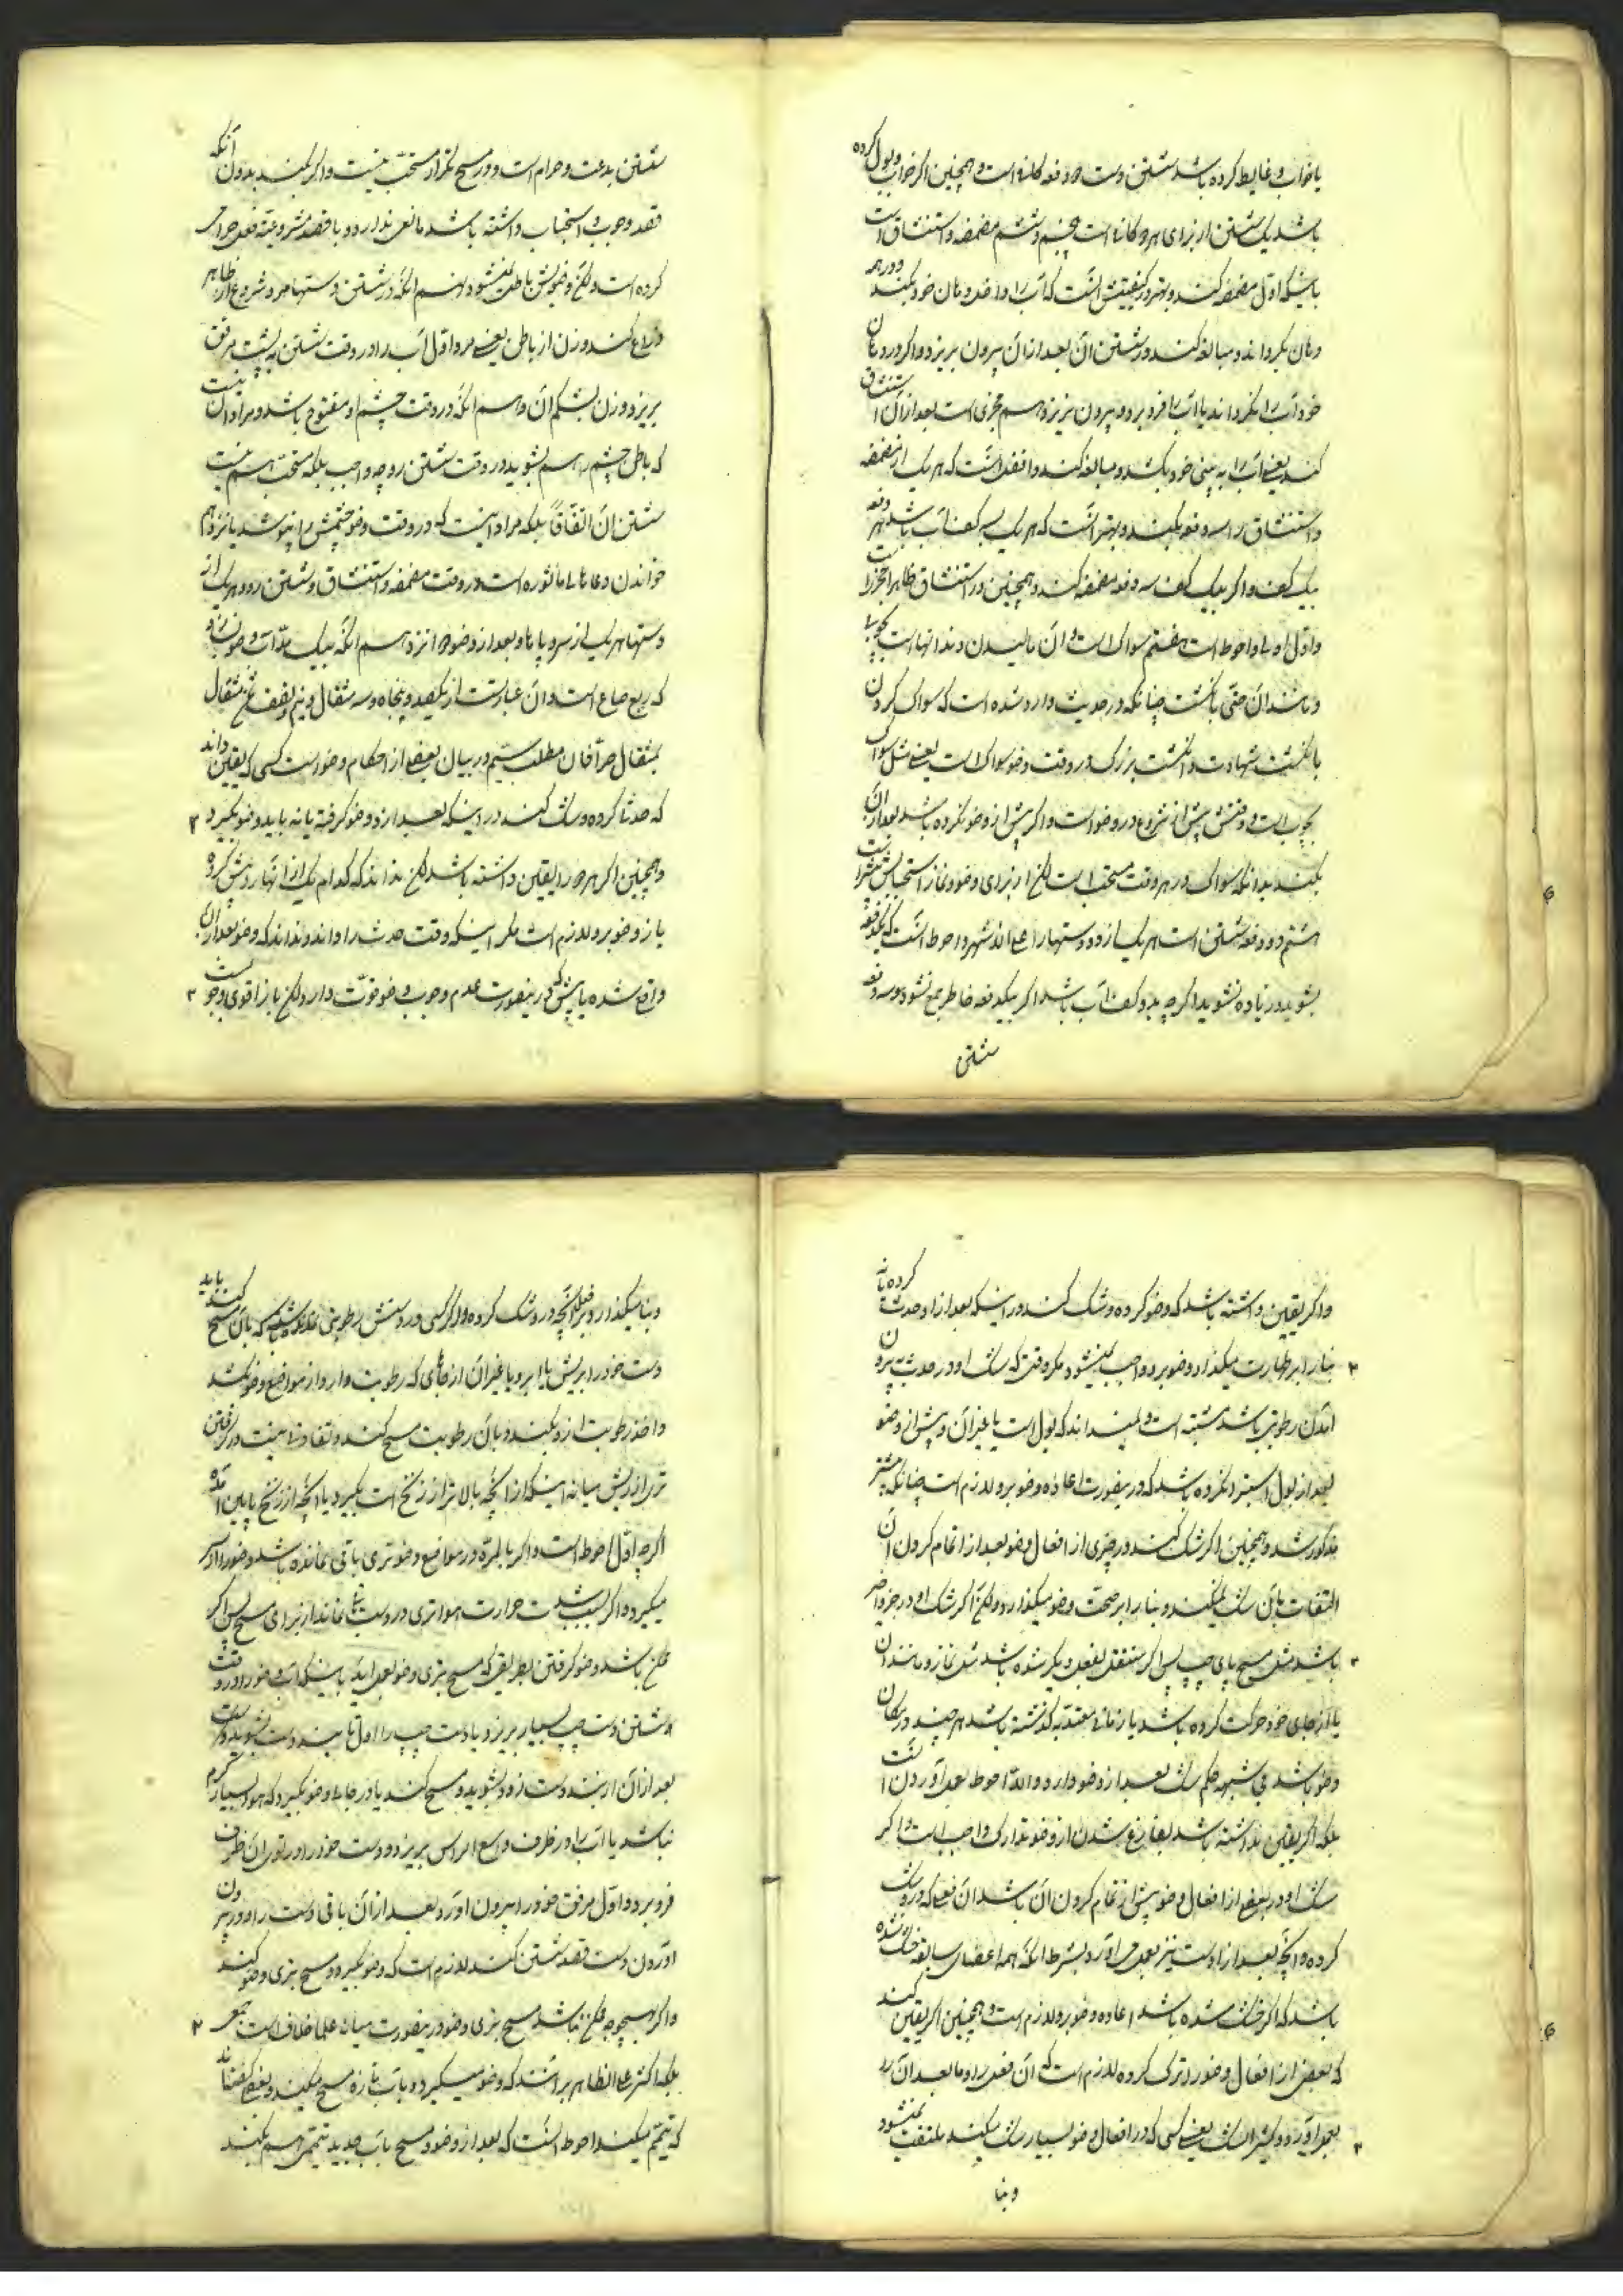 یا خواب و غایط کرده باشد شستن دست دو دفعه کافی است و همچنین اگر خواب و بول کرده
باشد یک شستن از برای هر دو کافی است پنجم و ششم مضمضه و استنشاق است
باینکه اول مضمضه کند و بهتر در کیفیتش آنست که آب را داخل دهان خود کند و در همه
دهان بگرداند و مبالغه کند در شستن آن بعد از آن بیرون بریزد و اگر در دهان
خود آب را نگرداند یا آب را فرو برد و بیرون نریزد هم مجزی است بعد از آن استنشاق
کند یعنی آب را به بینی خود بکشد و مبالغه کند و افضل آنست که هر یک از مضمضه
و استنشاق را سه دفعه بکند و بهتر آنست که هر یک به سه کف آب باشد هر دفعه
بیک کف و اگر بیک کف سه دفعه مضمضه کند و همچنین در استنشاق ظاهرا مجزیست
و اول اولی و احوط است هفتم سواک است و آن مالیدن دندانها است بچوب
و مانند آن حتی بانگشت چنانکه در حدیث وارد شده است که سواک کردن
بانگشت شهادت و انگشت بزرگ در وقت وضو سواک است یعنی مثل سواک
بچوب است و وقتش پیش از شروع در وضو است و اگر پیش از وضو نکرده باشد بعد از آن
بکند بدانکه سواک در هر وقت مستحب است لکن از برای وضو و نماز استحبابش بیشتر است
هشتم دو دفعه شستن است هر یک از رو و دستها را علی المشهور و احوط آنست که یکدفعه
بشوید و زیاده نشوید اگر چه بدو کف آب باشد اگر بیکدفعه خاطر جمع نشود و سه دفعه
شستن
شستن بدعت و حرام است و در مسح تکرار مستحب نیست و اگر بکند بدون آنکه
قصد وجوب و استحباب داشته باشد مانعی ندارد و با قصد مشروعیة فعل حرامی
کرده است ولکن وضویش باطل نمیشود نهم آنکه در شستن دستها مرد شروع از ظاهر
ذراع کند و زن از باطن یعنی مرد اول آب را در وقت شستن به پشت مرفق
بریزد و زن بشکم آن دهم آنکه در وقت چشم او مفتوح باشد و مراد آن نیست
که باطن چشم را هم بشوید در وقت شستن رو چه واجب بلکه مستحب هم نیست
شستن آن اتفاقا بلکه مراد اینست که در وقت وضو چشمش را نپوشد یازدهم
خواندن دعاهای ماثوره است در وقت مضمضه و استنشاق و شستن رو و هر یک از
دستها و هر یک از سر و پاها و بعد از وضو دوازدهم آنکه بیک مد آب وضو بسازد
که ربع صاع است و آن عبارتست از یکصد و پنجاه و سه مثقال و نیم و نصف ثمن مثقال
بمثقال صرافان مطلب سیم در بیان بعضی از احکام وضو است کسی که یقین داند
که حدث کرده و شک کند در اینکه بعد از او وضو گرفته یا نه باید وضو بگیرد
و همچنین اگر هر دو را یقین داشته باشد لکن نداند که کدام یک از آنها رو پیش کرده
باز وضو بر او لازم است مگر اینکه وقت حدث را داند و نداند که وضو بعد از آن
واقع شده یا پیش که در اینصورت عدم وجوب وضو قوت دارد ولکن باز اقوی وجوبست
و اگر یقین داشته باشد که وضو کرده و شک کند در اینکه بعد از او حدث کرده یا نه
بنا را بر طهارت میگذارد و وضو بر او واجب نمیشود مگر وقتی که شک او در حدث به بیرون
آمدن رطوبتی باشد مشتبه است و نمیداند که بول است یا غیر آن و پیش از وضو
بعد از بول استبرا نکرده باشد که در اینصورت اعاده وضو بر او لازم است چنانکه پیشتر
مذکور شد و همچنین اگر شک کند در چیزی از افعال وضو بعد از تمام کردن آن
التفات بآن شک نمیکند و بنا را بر صحت وضو میگذارد ولکن اگر شک او در جزو اخیر
باشد مثل مسح پای چپ پس اگر منتقل بفعل دیگر شده باشد مثل نماز و مانند آن
یا از جای خود حرکت کرده باشد یا زمان معتد به گذشته باشد هر چند در مکان
وضو باشد بی شبهه حکم شک بعد از وضو دارد و الا احوط بعمل آوردن آنست
بلکه اگر یقین نداشته باشد بفارغ شدن از وضو تدارک واجب است و اگر
شک او در بعضی از افعال وضو پیش از تمام کردن آن باشد آن فعلی که در او شک
کرده و آنچه بعد از اوست نیز بعمل می آورد بشرط آنکه همه اعضای سابقه خشک نشده
باشد که اگر خشک شده باشد اعاده وضو بر او لازم است و همچنین اگر یقین کند
که بعضی از افعال وضو را ترک کرده لازم است که آن فعل را و ما بعد آن را
بعمل آورد و کثیر الشک یعنی کسی که در افعال وضو بسیار شک میکند ملتفت نمیشود
و بنا
و بنا میگذارد بر فعل آنچه در او شک کرده و اگر کسی در دستش رطوبتی نمانده باشد که بآن مسح کند باید
دست خود را بریش یا ابرو یا غیر آن از جاهای که رطوبت دارد از مواضع وضو بکشد
و اخذ رطوبت از او بکند و بآن رطوبت مسح کند و تفاوتی نیست در گرفتن
تری از ریش میانه اینکه از آنچه بالاتر از زنخ است بگیرد یا آنچه از زنخ پایین آمده
اگر چه اول احوط است و اگر بالمره در مواضع وضو تری باقی نمانده باشد وضو را از سر
میگیرد و اگر بسبب شدت حرارت هوا تری در دست نماند از برای مسح پس اگر
ممکن باشد وضو گرفتن بطریقی که مسح بتری وضو بعمل آید باینکه آب وضو را در وقت
شستن دست چپ بسیار بریزد یا دست چپ را اول تا بند دست بشوید و
بعد از آن از بند دست زود بشوید و مسح کند یا در جایی وضو بگیرد که هوا بسیار گرم
نباشد یا آب را در ظرف واسع الراس بریزد و دست خود را در توی آن ظرف
فرو برد و اول مرفق خود را بیرون آورد بعد از آن باقی دست را و در بیرون
آوردن دست قصد شستن کند لازم است که وضو بگیرد و مسح بتری وضو کند
و اگر بهیچوجه ممکن نباشد مسح بتری وضو در اینصورت میان علما خلاف است جمعی
بلکه اکثر علی الظاهر بر آنند که وضو میگیرد و بآب تازه مسح میکند و بعضی گفته‌اند
که تیمم میکند و احوط آنست که بعد از وضو و مسح بآب جدید تیمم هم بکند